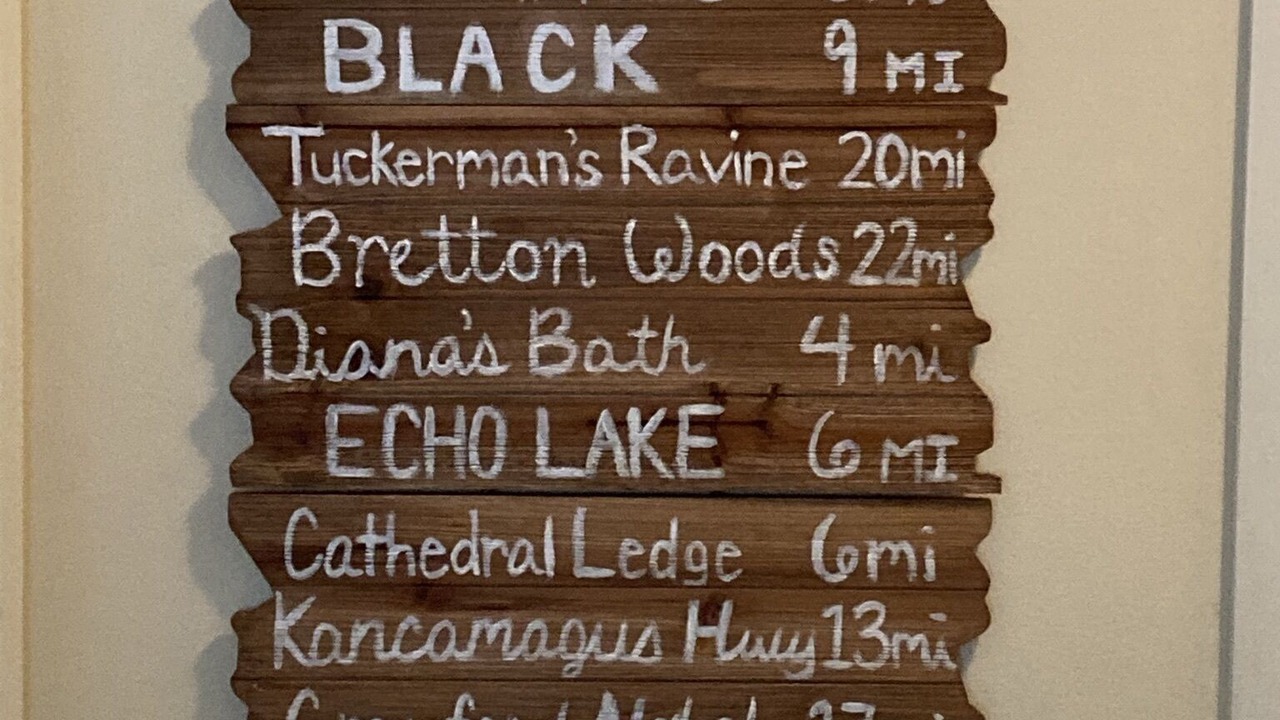 BLACK 9 MI
Tuckerman's Ravine 20mi
Bretton Woods 22mi
Diana's Bath 4 mi
ECHO LAKE 6 MI
Cathedral Ledge 6mi
Kancamagus Hwy 13mi